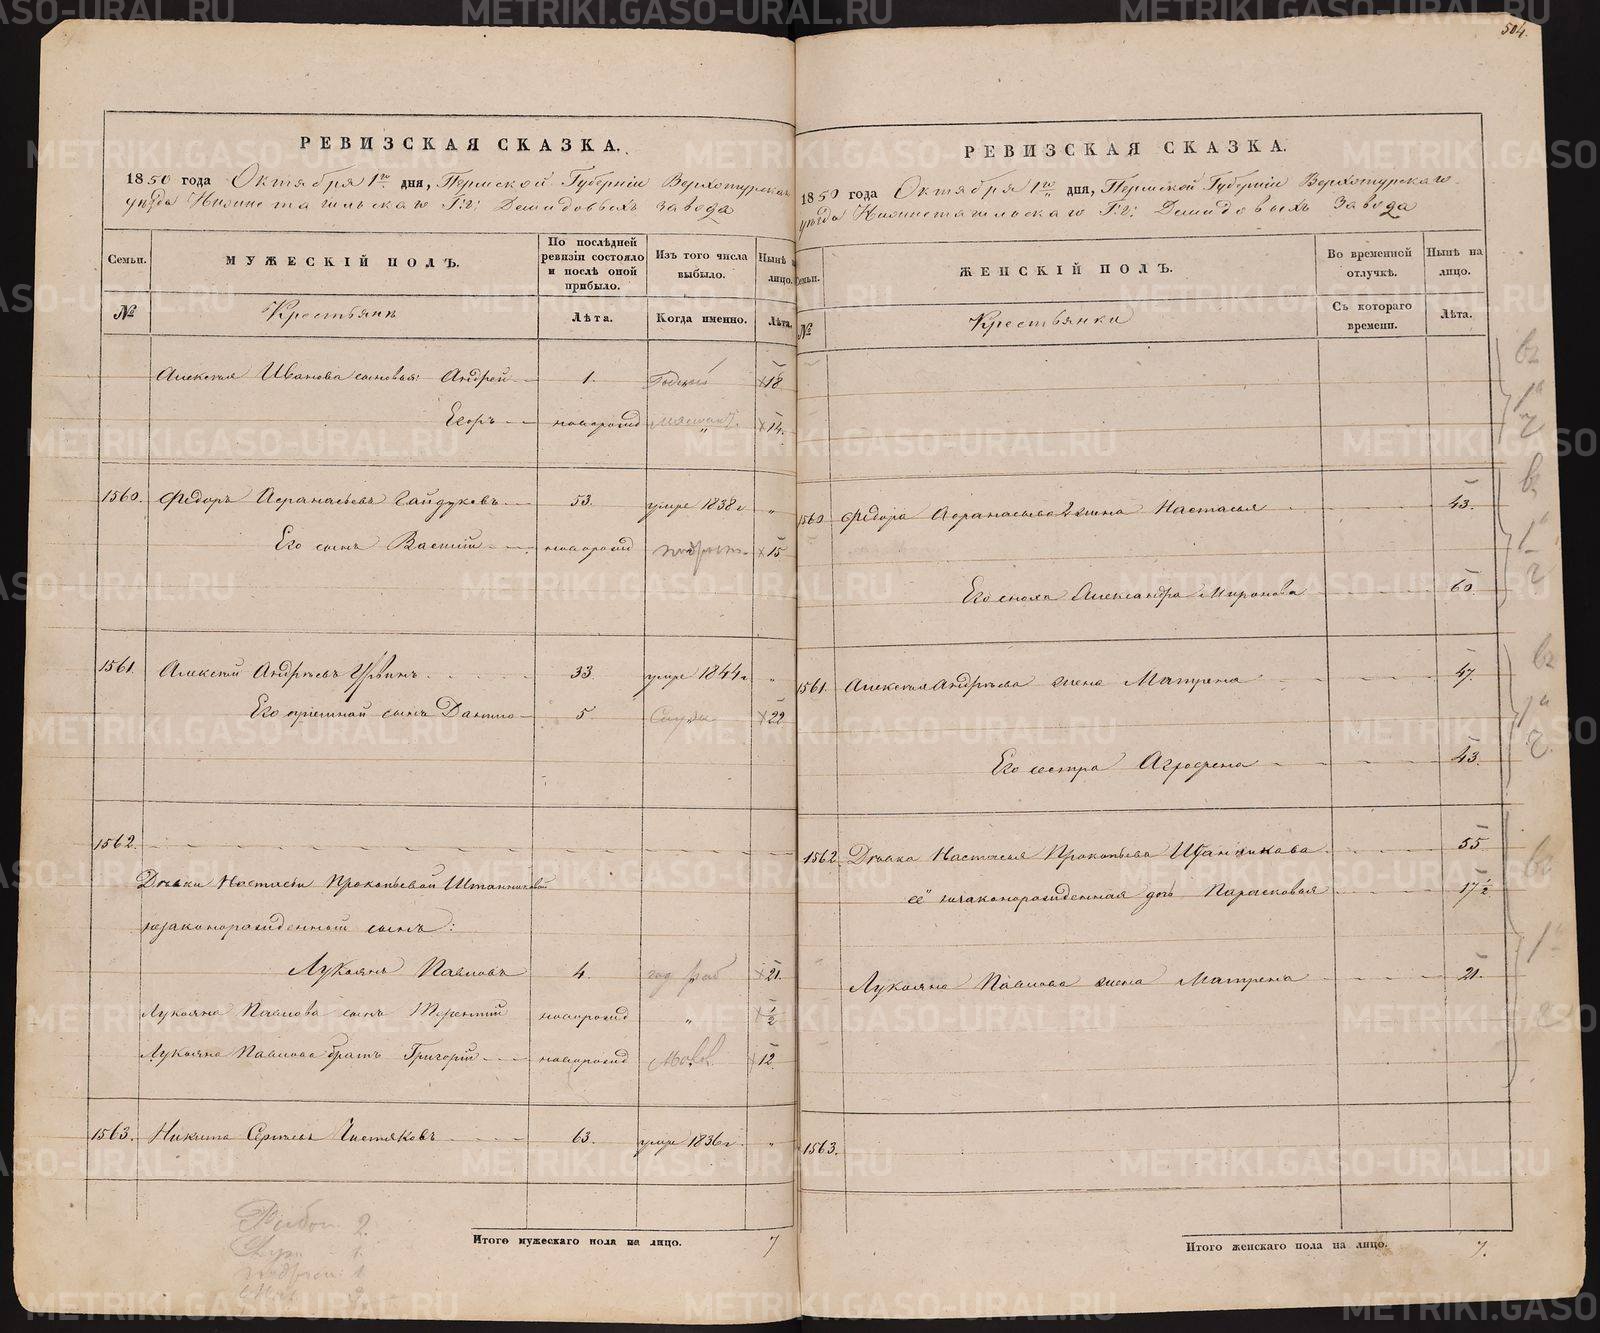 504.
РЕВИЗСКАЯ СКАЗКА.
1850 года Октября 1го дня, Пермской Губерніи Верхотурскаго
уѣзда Нижнетагильскаго Г:г: Демидовыхъ завода
Семьи.
МУЖЕСКІЙ ПОЛЪ.
По послѣдней ревизіи состояло и послѣ оной прибыло.
Изъ того числа выбыло.
Нынѣ на лицо.
№
Крестьянъ
Лѣта.
Когда именно.
Лѣта.
Алексѣя Иванова сыновья: Андрей 1. 18
Егоръ новорожд 14.
1560. Федоръ Афанасьевъ Гайдуковъ 53. умре 1838г "
Его сынъ Василий новорожд 15
1561. Алексѣй Андрѣевъ 33 умре 1844г "
Его сынъ Данило 5 22
1562.
Дѣвки Настасьи Прокопьевой Штанниковой
незаконорожденный сынъ:
Лукоянъ Павловъ 4. 21.
Лукояна Павлова сынъ Терентий новорожд " ½
Лукояна Павлова братъ Григорий новорожд 12
1563. Никита Сергѣевъ Чистяковъ 63. умре 1836г. "
Итого мужескаго пола на лицо. 7
РЕВИЗСКАЯ СКАЗКА.
1850 года Октября 1го дня, Пермской Губерніи Верхотурскаго
уѣзда Нижнетагильскаго Г:г: Демидовыхъ завода
Семьи.
ЖЕНСКІЙ ПОЛЪ.
Во временной отлучкѣ.
Нынѣ на лицо.
№
Крестьянки
Съ котораго времени.
Лѣта.
1560 Федора Афанасьева 2 жена Настасья 43.
Его сноха Александра Миронова 60.
1561. Алексѣя Андрѣева жена Матрена 47.
Его сестра Агрофена 43.
1562 Дѣвка Настасья Прокопьева Штанникова 55
ее незаконорожденная дочь Парасковья 17½
Лукояна Павлова жена Матрена 21.
1563.
Итого женскаго пола на лицо. 7.
METRIKI.GASO-URAL.RU